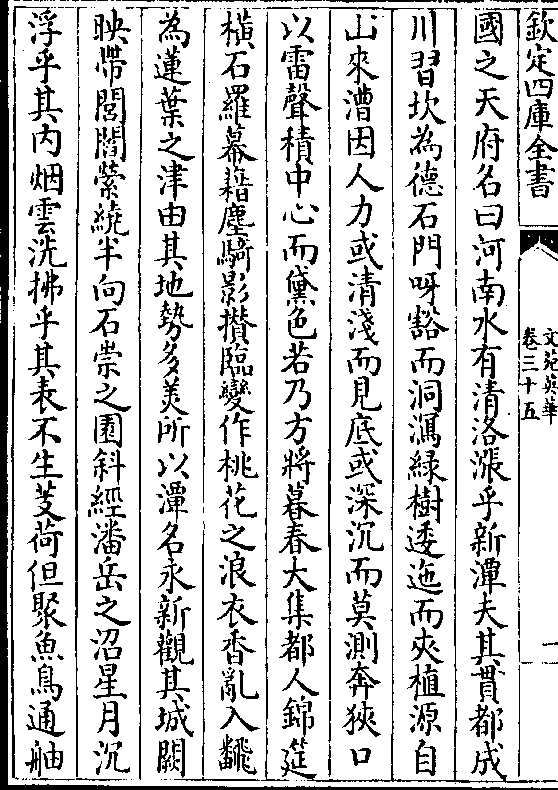 欽定四庫全書
文苑英華
卷三十五
一
國之天府名曰河南水有清洛漲乎新潭夫其貫都成
川習坎為德石門呀豁而洞瀉緑樹逶迤而夾植源自
山來漕因人力或清淺而見底或深沉而莫測奔狹口
以雷聲積中心而黛色若乃方將暮春大集都人錦筵
横石羅幕藉塵騎影攢臨變作桃花之浪衣香亂入飜
為蓮葉之津由其地勢多美所以潭名永新觀其城闕
映帶閭閻縈繞半向石崇之園斜經潘岳之沼星月沉
浮乎其内烟雲洗拂乎其表不生芰荷但聚魚鳥通舳